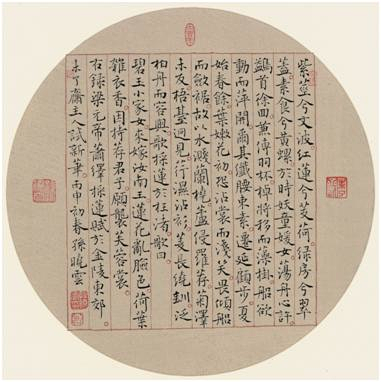 紫莖兮文波紅蓮兮芰荷綠房兮翠
蓋素實兮黃螺於時妖童媛女蕩舟心許
鷁首徐回兼傳羽杯棹將移而藻掛船欲
動而萍開爾其纖腰束素遷延顧步夏
始春餘葉嫩花初恐沾裳而淺笑畏傾船
而斂裾故以水濺蘭橈蘆侵羅荐菊澤
未反梧臺迥見荇濕沾衫菱長繞釧泛
柏舟而容與歌採蓮於江渚歌曰
碧玉小家女來嫁汝南王蓮花亂臉色荷葉
雜衣香因持荐君子願襲芙蓉裳
右錄梁元帝蕭繹採蓮賦於金陵東郊
未了齋主人試新筆丙申初春孫曉雲